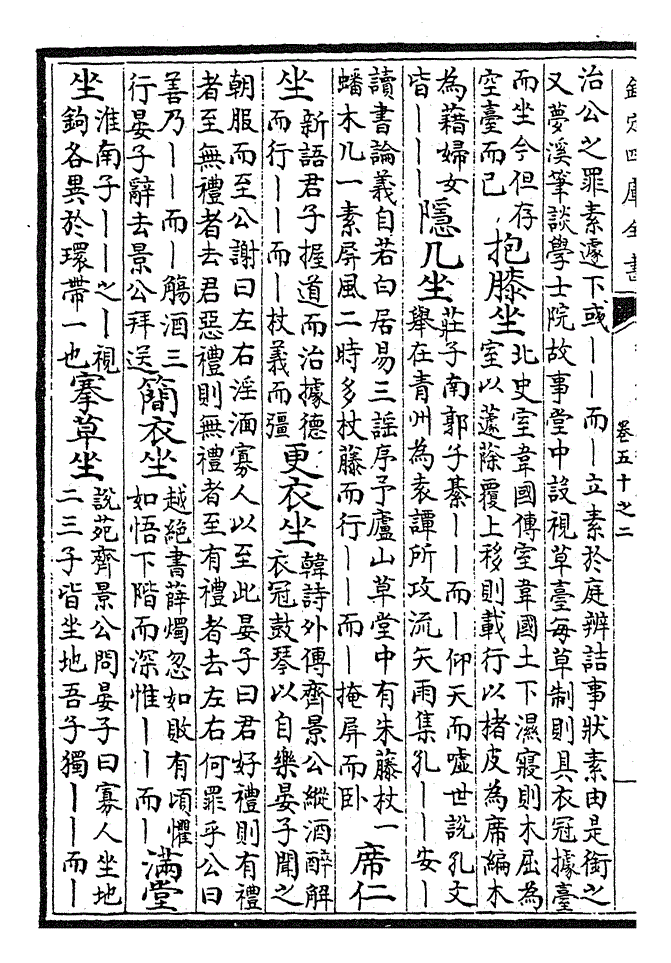 欽定四庫全書
卷五十之二
治公之罪素遽下或｜｜而｜立素於庭辨詰事狀素由是銜之
又夢溪筆談學士院故事堂中設視草臺每草制則具衣冠據臺
而坐今但存
空臺而已
抱膝坐
北史室韋國傳室韋國土下濕寢則木屈為
室以蘧蒢覆上移則載行以楮皮為席編木
為藉婦女
皆｜｜｜
隱几坐
莊子南郭子綦｜｜而｜仰天而噓世說孔文
舉在青州為袁譚所攻流矢雨集孔｜｜安｜
讀書論義自若白居易三謡序予廬山草堂中有朱藤杖一
蟠木几一素屏風二時多杖藤而行｜｜而｜掩屏而卧
席仁
坐
新語君子握道而治據德
而行｜｜而｜杖義而彊
更衣坐
韓詩外傳齊景公縱酒醉解
衣冠鼓琴以自樂晏子聞之
朝服而至公謝曰左右淫湎寡人以至此晏子曰君好禮則有禮
者至無禮者去君惡禮則無禮者至有禮者去左右何罪乎公曰
善乃｜｜而｜觴酒三
行晏子辭去景公拜送
簡衣坐
越絶書薛燭忽如敗有頃懼
如悟下階而深惟｜｜而｜
滿堂
坐
淮南子｜｜之｜視
鉤各異於環帶一也
搴草坐
說苑齊景公問晏子曰寡人坐地
二三子皆坐地吾子獨｜｜而｜